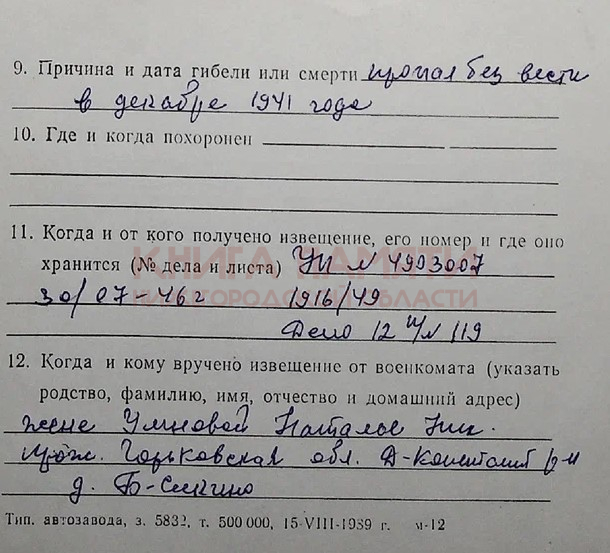 9. Причина и дата гибели или смерти пропал без вести
в декабре 1941 года
10. Где и когда похоронен
11. Когда и от кого получено извещение, его номер и где оно
хранится (№ дела и листа) УП N 4903007
КНИГА ПАМЯТИ
НИЖЕГОРОДСКОЙ ОБЛАСТИ
30/07-46 г 1916/49
Дело 12 119
12. Когда и кому вручено извещение от военкомата (указать
родство, фамилию, имя, отчество и домашний адрес)
жене Умновой Наталье Ник.
прож. Горьковская обл. Д-Константин р-н
д. Б-Сескино
Тип. автозавода, з. 5832, т. 500 000, 15-VIII-1989 г. м-12